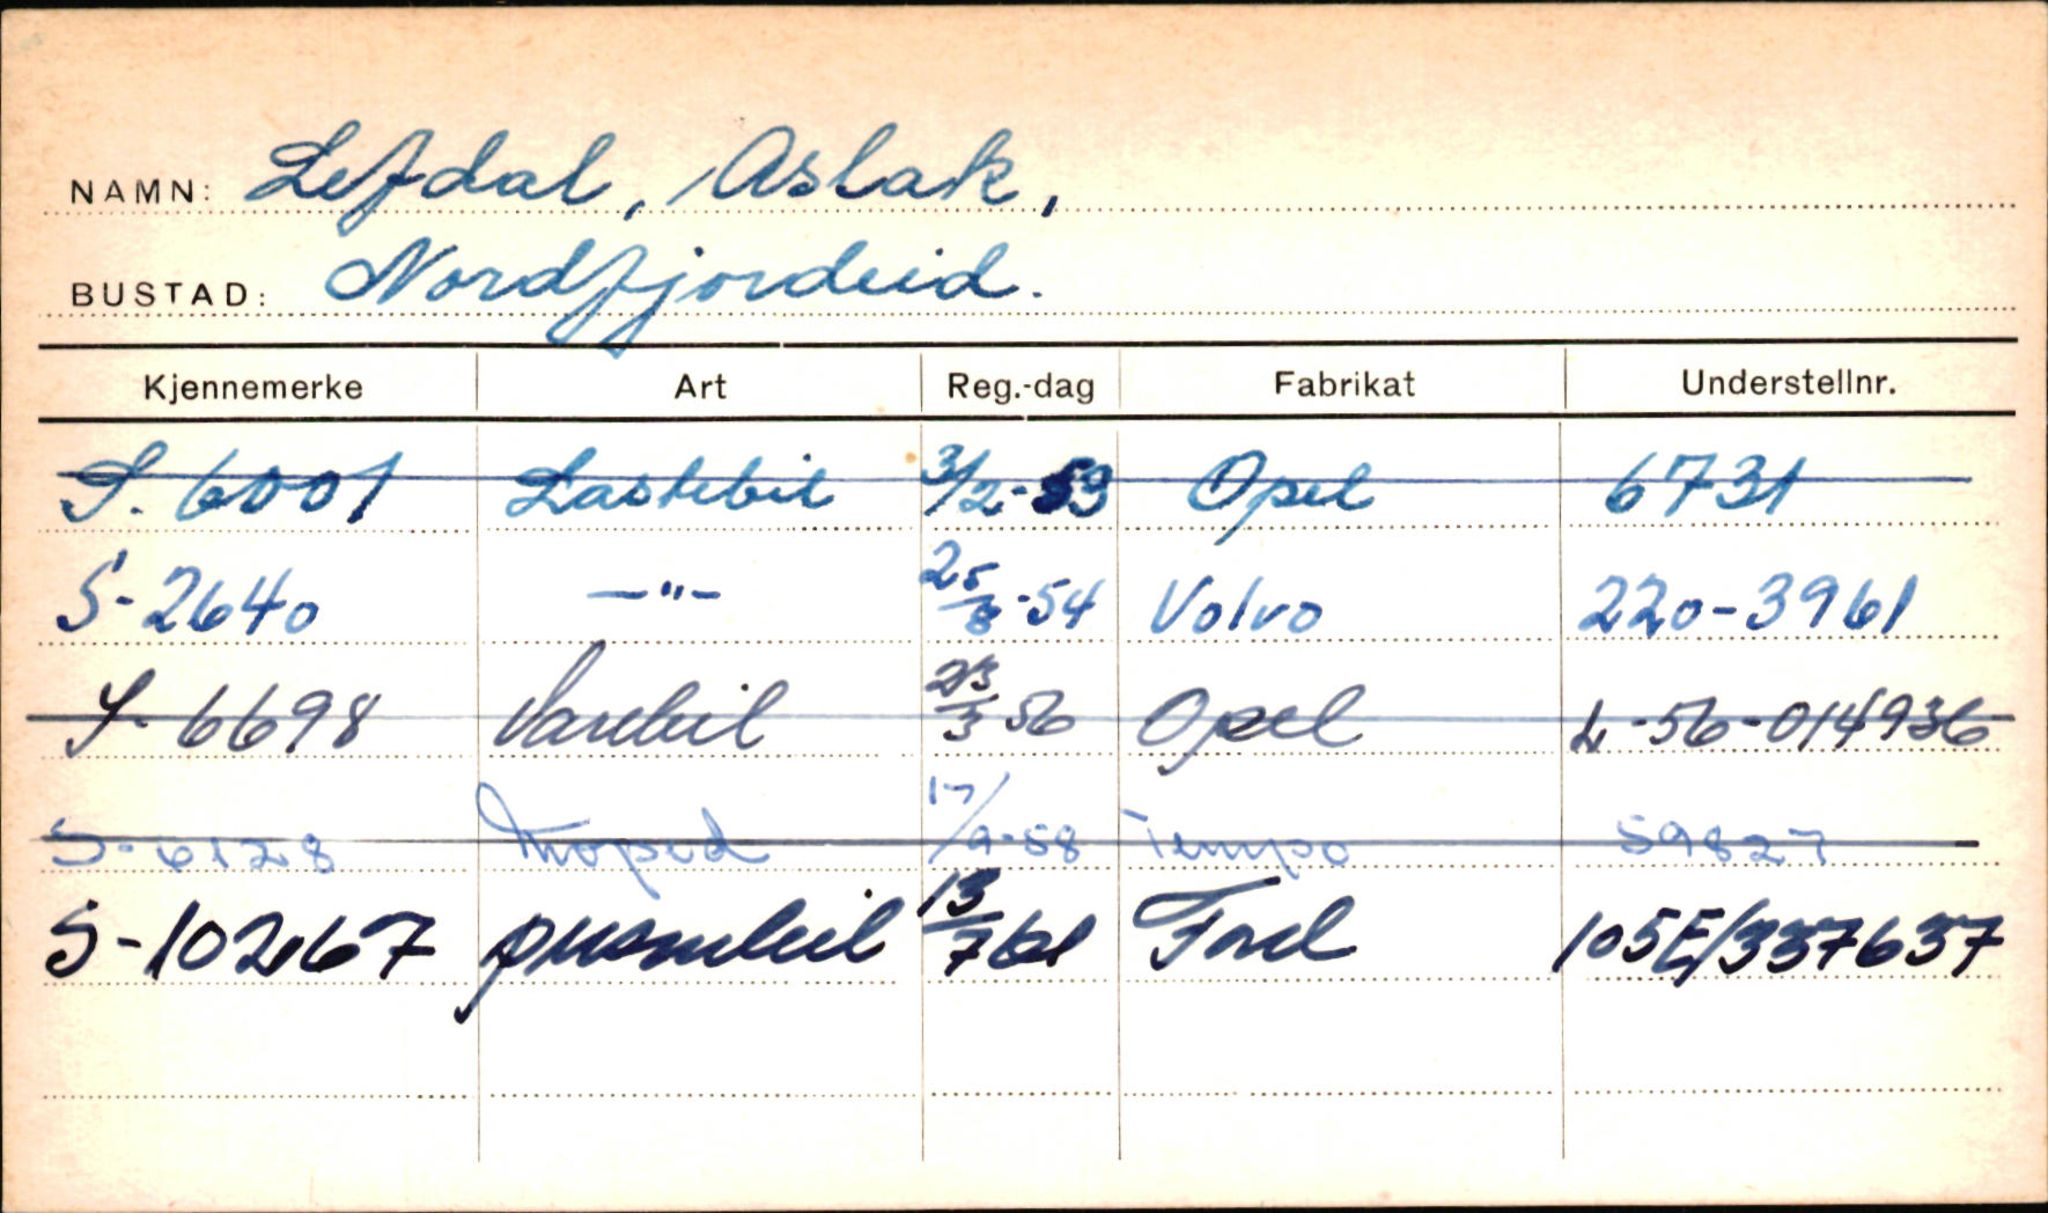 NAMN: Lefdal, Aslak,
BUSTAD: Nordfjordeid.
Kjennemerke Art Reg.-dag Fabrikat Understellnr.
S. 6001 Lastebil 3/2-53 Opel 6731
S-2640 —"— 25/8-54 Volvo 220-3961
S-6698 Varebil 23/3 56 Opel L-56-014936
S-6128 Moped 17/9-58 Tempo 59827
S-10267 personbil 13/7 61 Ford 105E/337637